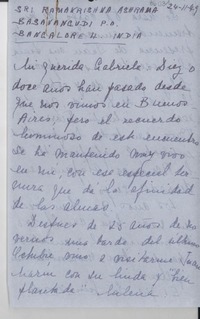 SRI RAMAKRISHNA ASHRAMA 24-11-49
BASAVANGUDI P.O.
BANGALORE 4. INDIA
Mi querida Gabriela: Diez o
doce años han pasado desde
que nos vimos en Buenos
Aires, pero el recuerdo
luminoso de este encuentro
se ha mantenido muy vivo
en mi, con ese especial
que da la afinidad
de las almas.
Despues de 25 años de no
vernos una tarde del ultimo
Octubre vino a visitarme Juan
Marin con su linda y "bien
plantada" Milena